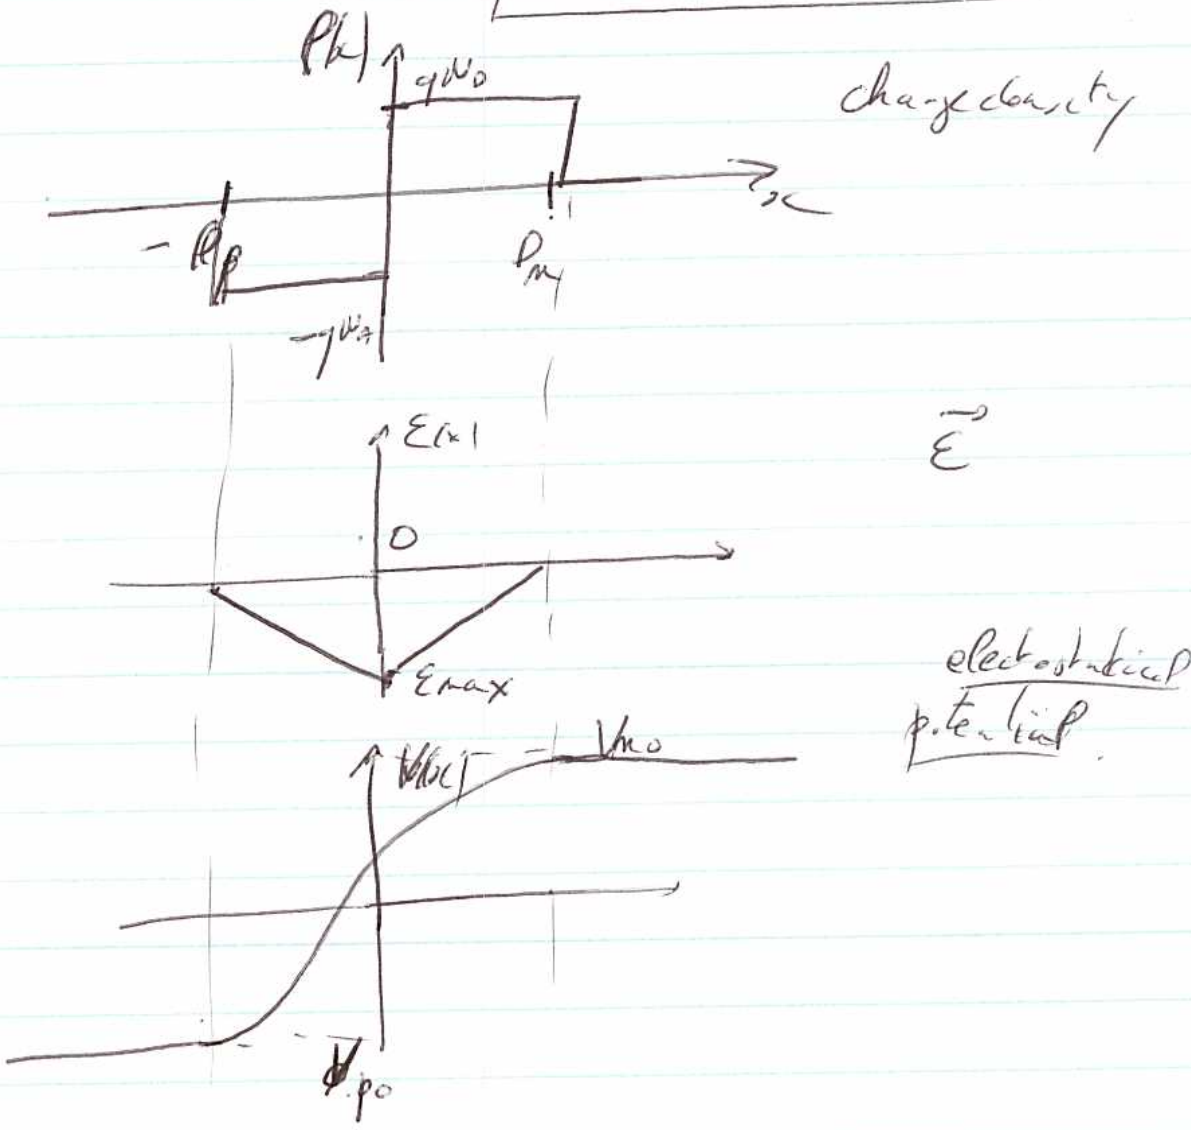 ρ(x)
qN_D
charge density
x
- l_p
l_n
-qN_A
ε(x)
ε⃗
0
ε max
electrostatical
potential.
V(x)
V_no
V_po